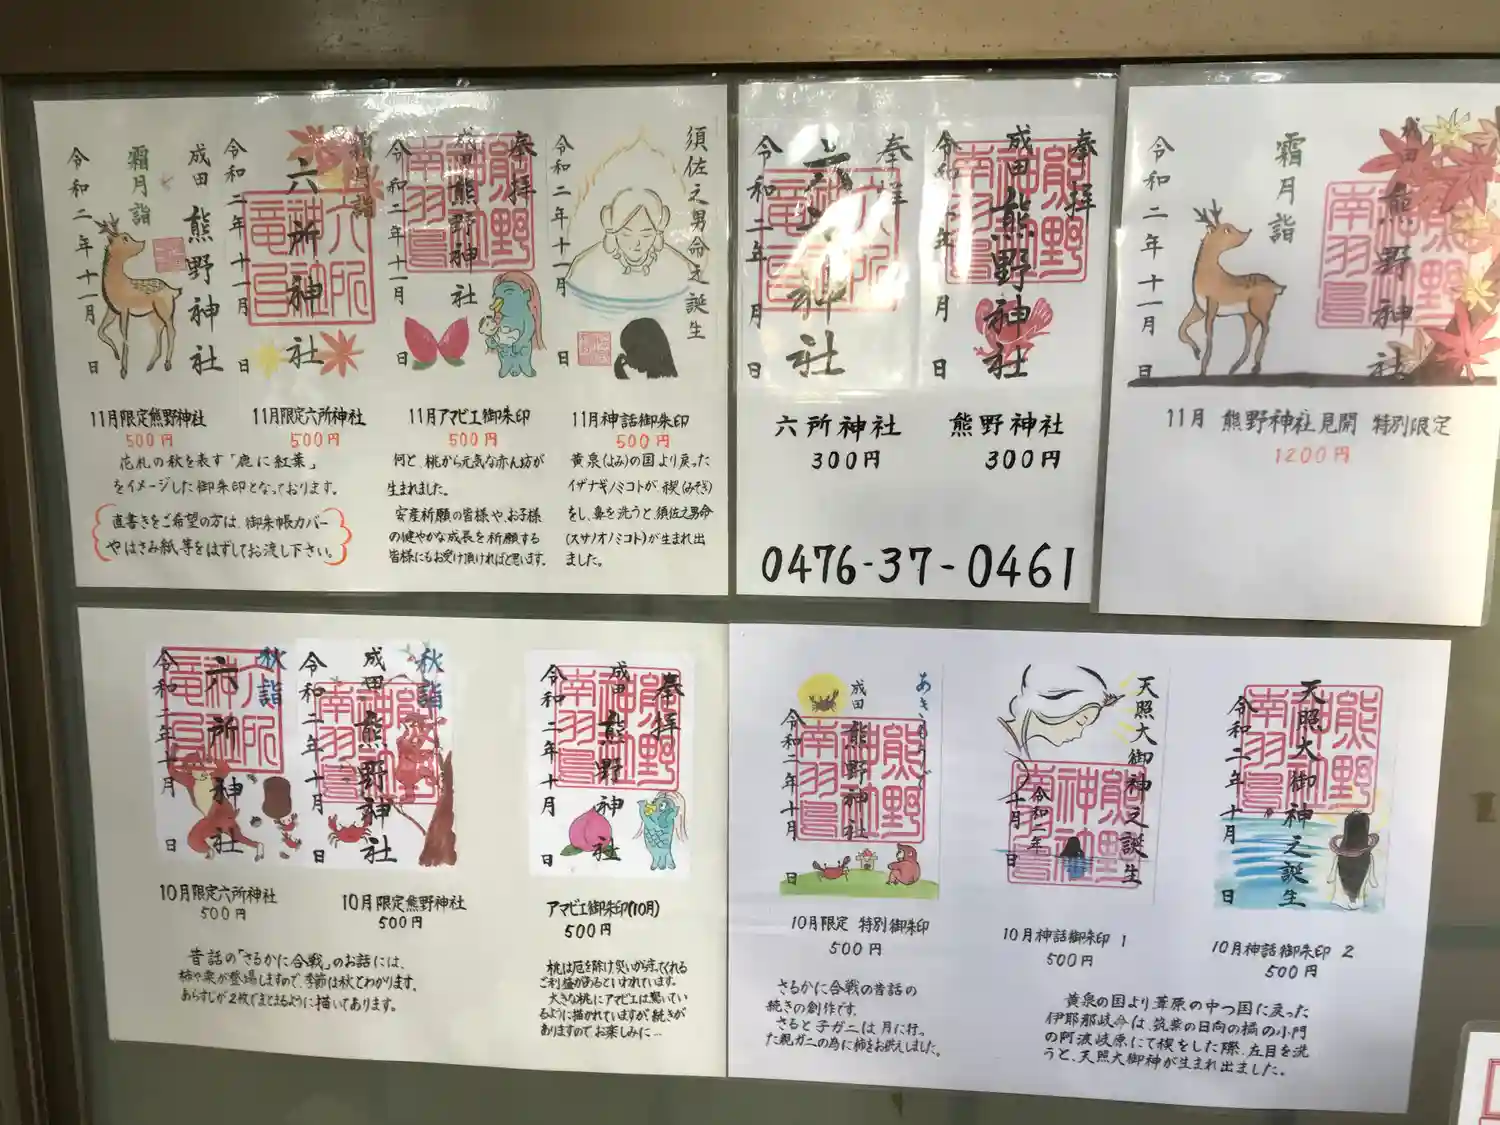 令和二年十一月 日
霜月詣
成田 熊野神社
令和二年十一月 日
六所神社
霜月詣
令和二年十一月 日
成田 熊野神社
奉拝
令和二年十一月 日
須佐之男命之誕生
11月限定熊野神社
500円
11月限定六所神社
500円
花札の秋を表す「鹿に紅葉」
をイメージした御朱印となっております。
直書きをご希望の方は、御朱帳カバー
やはさみ紙等をはずしてお渡し下さい。
11月アマビエ御朱印
500円
何と、桃から元気な赤ん坊が
生まれました。
安産祈願の皆様や、お子様
の健やかな成長を祈願する
皆様にもお受け頂ければと思います。
11月神話御朱印
500円
黄泉(よみ)の国より戻った
イザナギノミコトが、禊(みそぎ)
をし、鼻を洗うと、須佐之男命
(スサノオノミコト)が生まれ出
ました。
令和二年 月 日
六所神社
奉拝
令和二年 月 日
成田 熊野神社
奉拝
六所神社
300円
熊野神社
300円
0476-37-0461
令和二年十一月 日
霜月詣
成田 熊野神社
11月 熊野神社見開 特別限定
1200円
令和二年十月 日
六所神社
秋詣
令和二年十月 日
成田 熊野神社
秋詣
10月限定六所神社
500円
10月限定熊野神社
500円
昔話の「さるかに合戦」のお話には、
柿や栗が登場しますので、季節は秋とわかります。
あらすじが2枚でまとまるように描いてあります。
令和二年十月 日
成田 熊野神社
奉拝
アマビエ御朱印(10月)
500円
桃は厄を除け災いが去ってくれる
ご利益があるといわれています。
大きな桃にアマビエは驚いてい
るように描かれていますが、続きが
ありますので、お楽しみに…
令和二年十月 日
成田 熊野神社
10月限定 特別御朱印
500円
さるかに合戦の昔話の
続きの創作です。
さると子ガニは月に行っ
た親ガニの為に柿をお供えしました。
令和二年十月 日
天照大御神之誕生
10月神話御朱印 1
500円
令和二年十月 日
天照大御神之誕生
10月神話御朱印 2
500円
黄泉の国より葦原の中つ国に戻った
伊耶那岐命は、筑紫の日向の橘の小門
の阿波岐原にて禊をした際、左目を洗
うと、天照大御神が生まれ出ました。